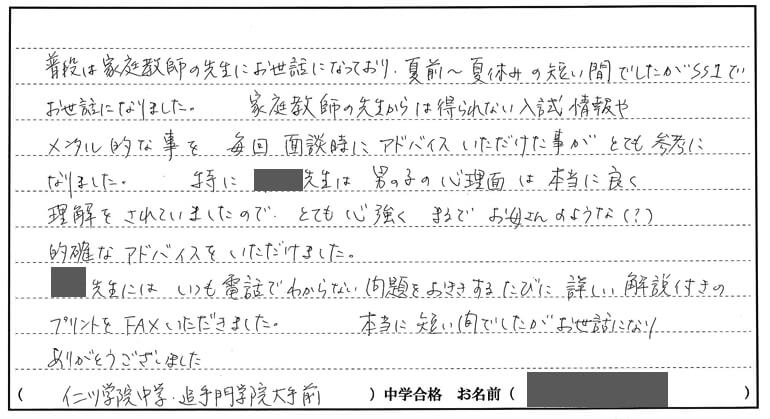 普段は家庭教師の先生にお世話になっており、夏前～夏休みの短い間でしたがSS1で
お世話になりました。 家庭教師の先生からは得られない入試情報や
メンタル的な事を 毎回 面談時に アドバイス いただけた事が とても 参考に
なりました。 特に 先生は 男の子の心理面は 本当に良く
理解をされていましたので、とても心強く まるで お母さんのような(?)
的確な アドバイスを いただけました。
先生には いつも 電話で わからない 問題を おききするたびに 詳しい 解説付きの
プリントを FAXいただきました。 本当に 短い間でしたが お世話になり
ありがとうございました
( 仁川学院中学・追手門学院大手前 ) 中学合格 お名前 ( )